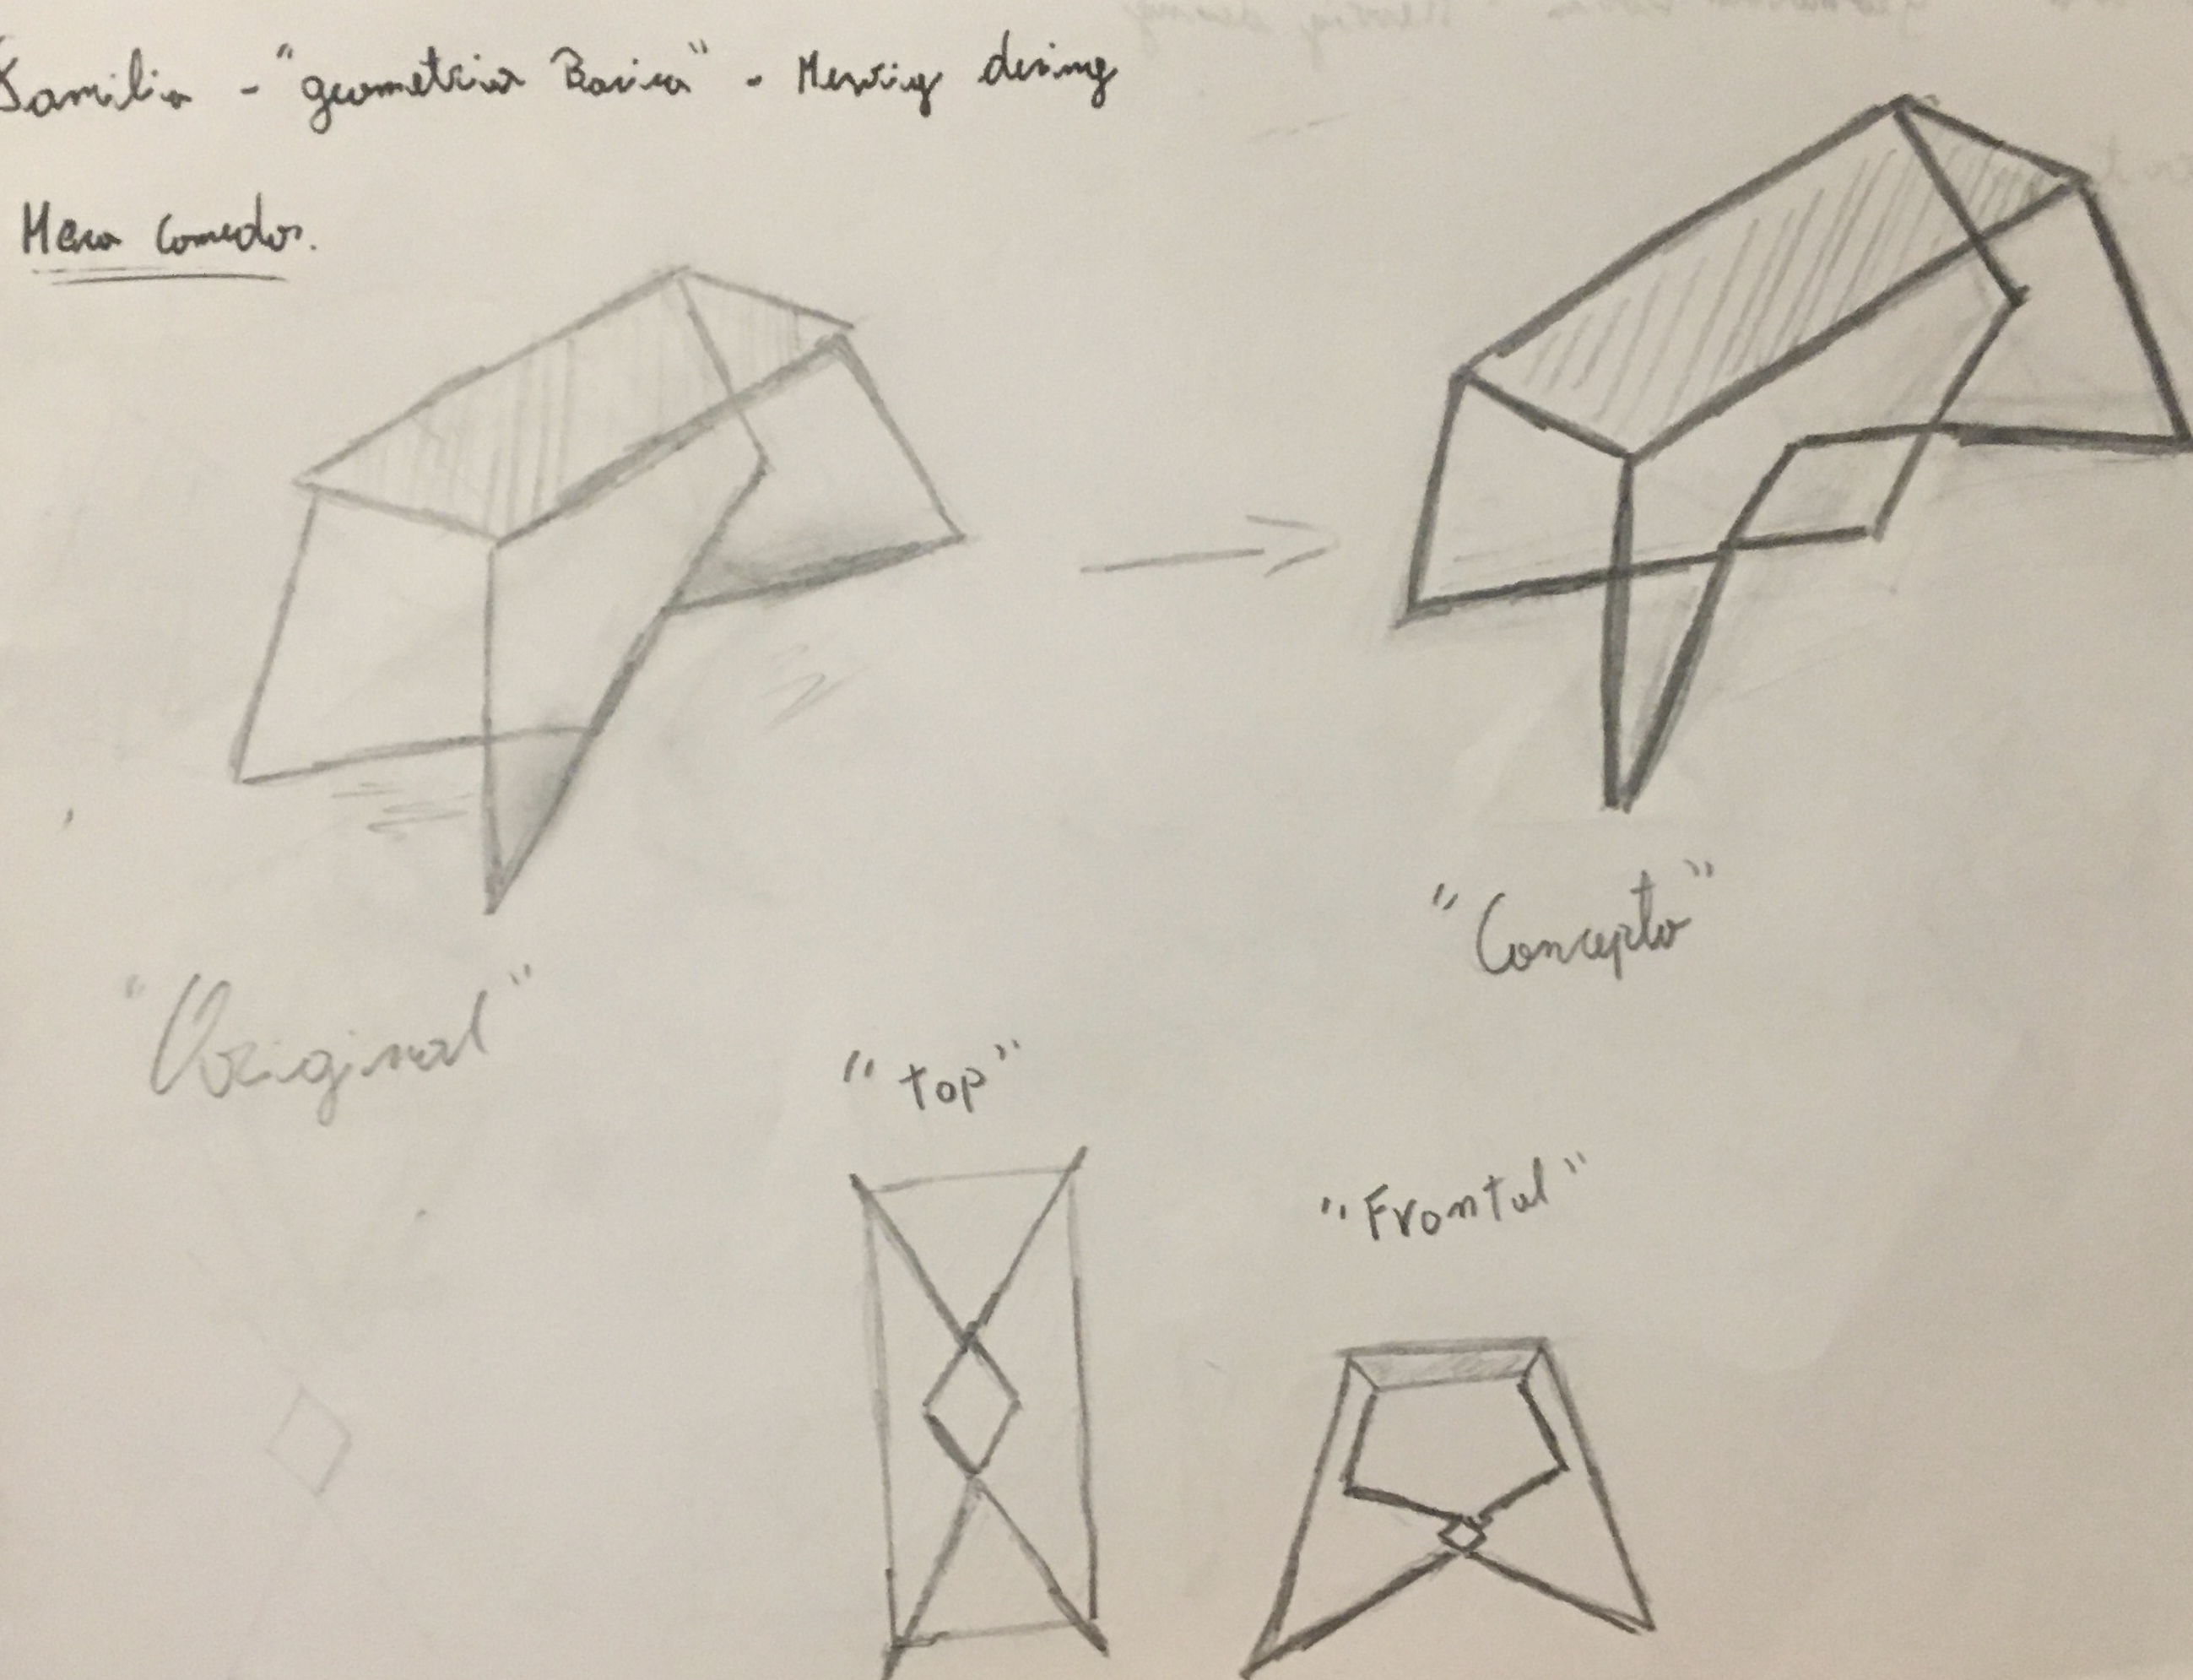 Familia - "geometria Basica" - desing
Mesa Comedor.
"Original"
"Concepto"
"top"
"Frontal"